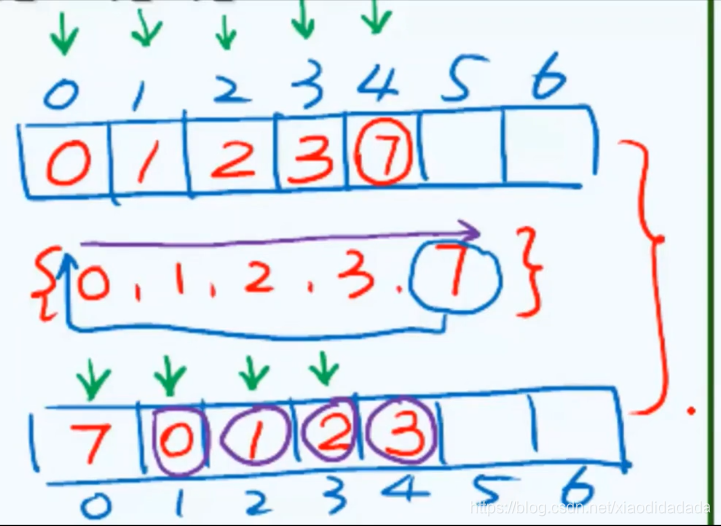 0 1 2 3 4 5 6
0 1 2 3 7
{0, 1, 2, 3, 7}
7 0 1 2 3
0 1 2 3 4 5 6
https://blog.csdn.net/xiaodidadada